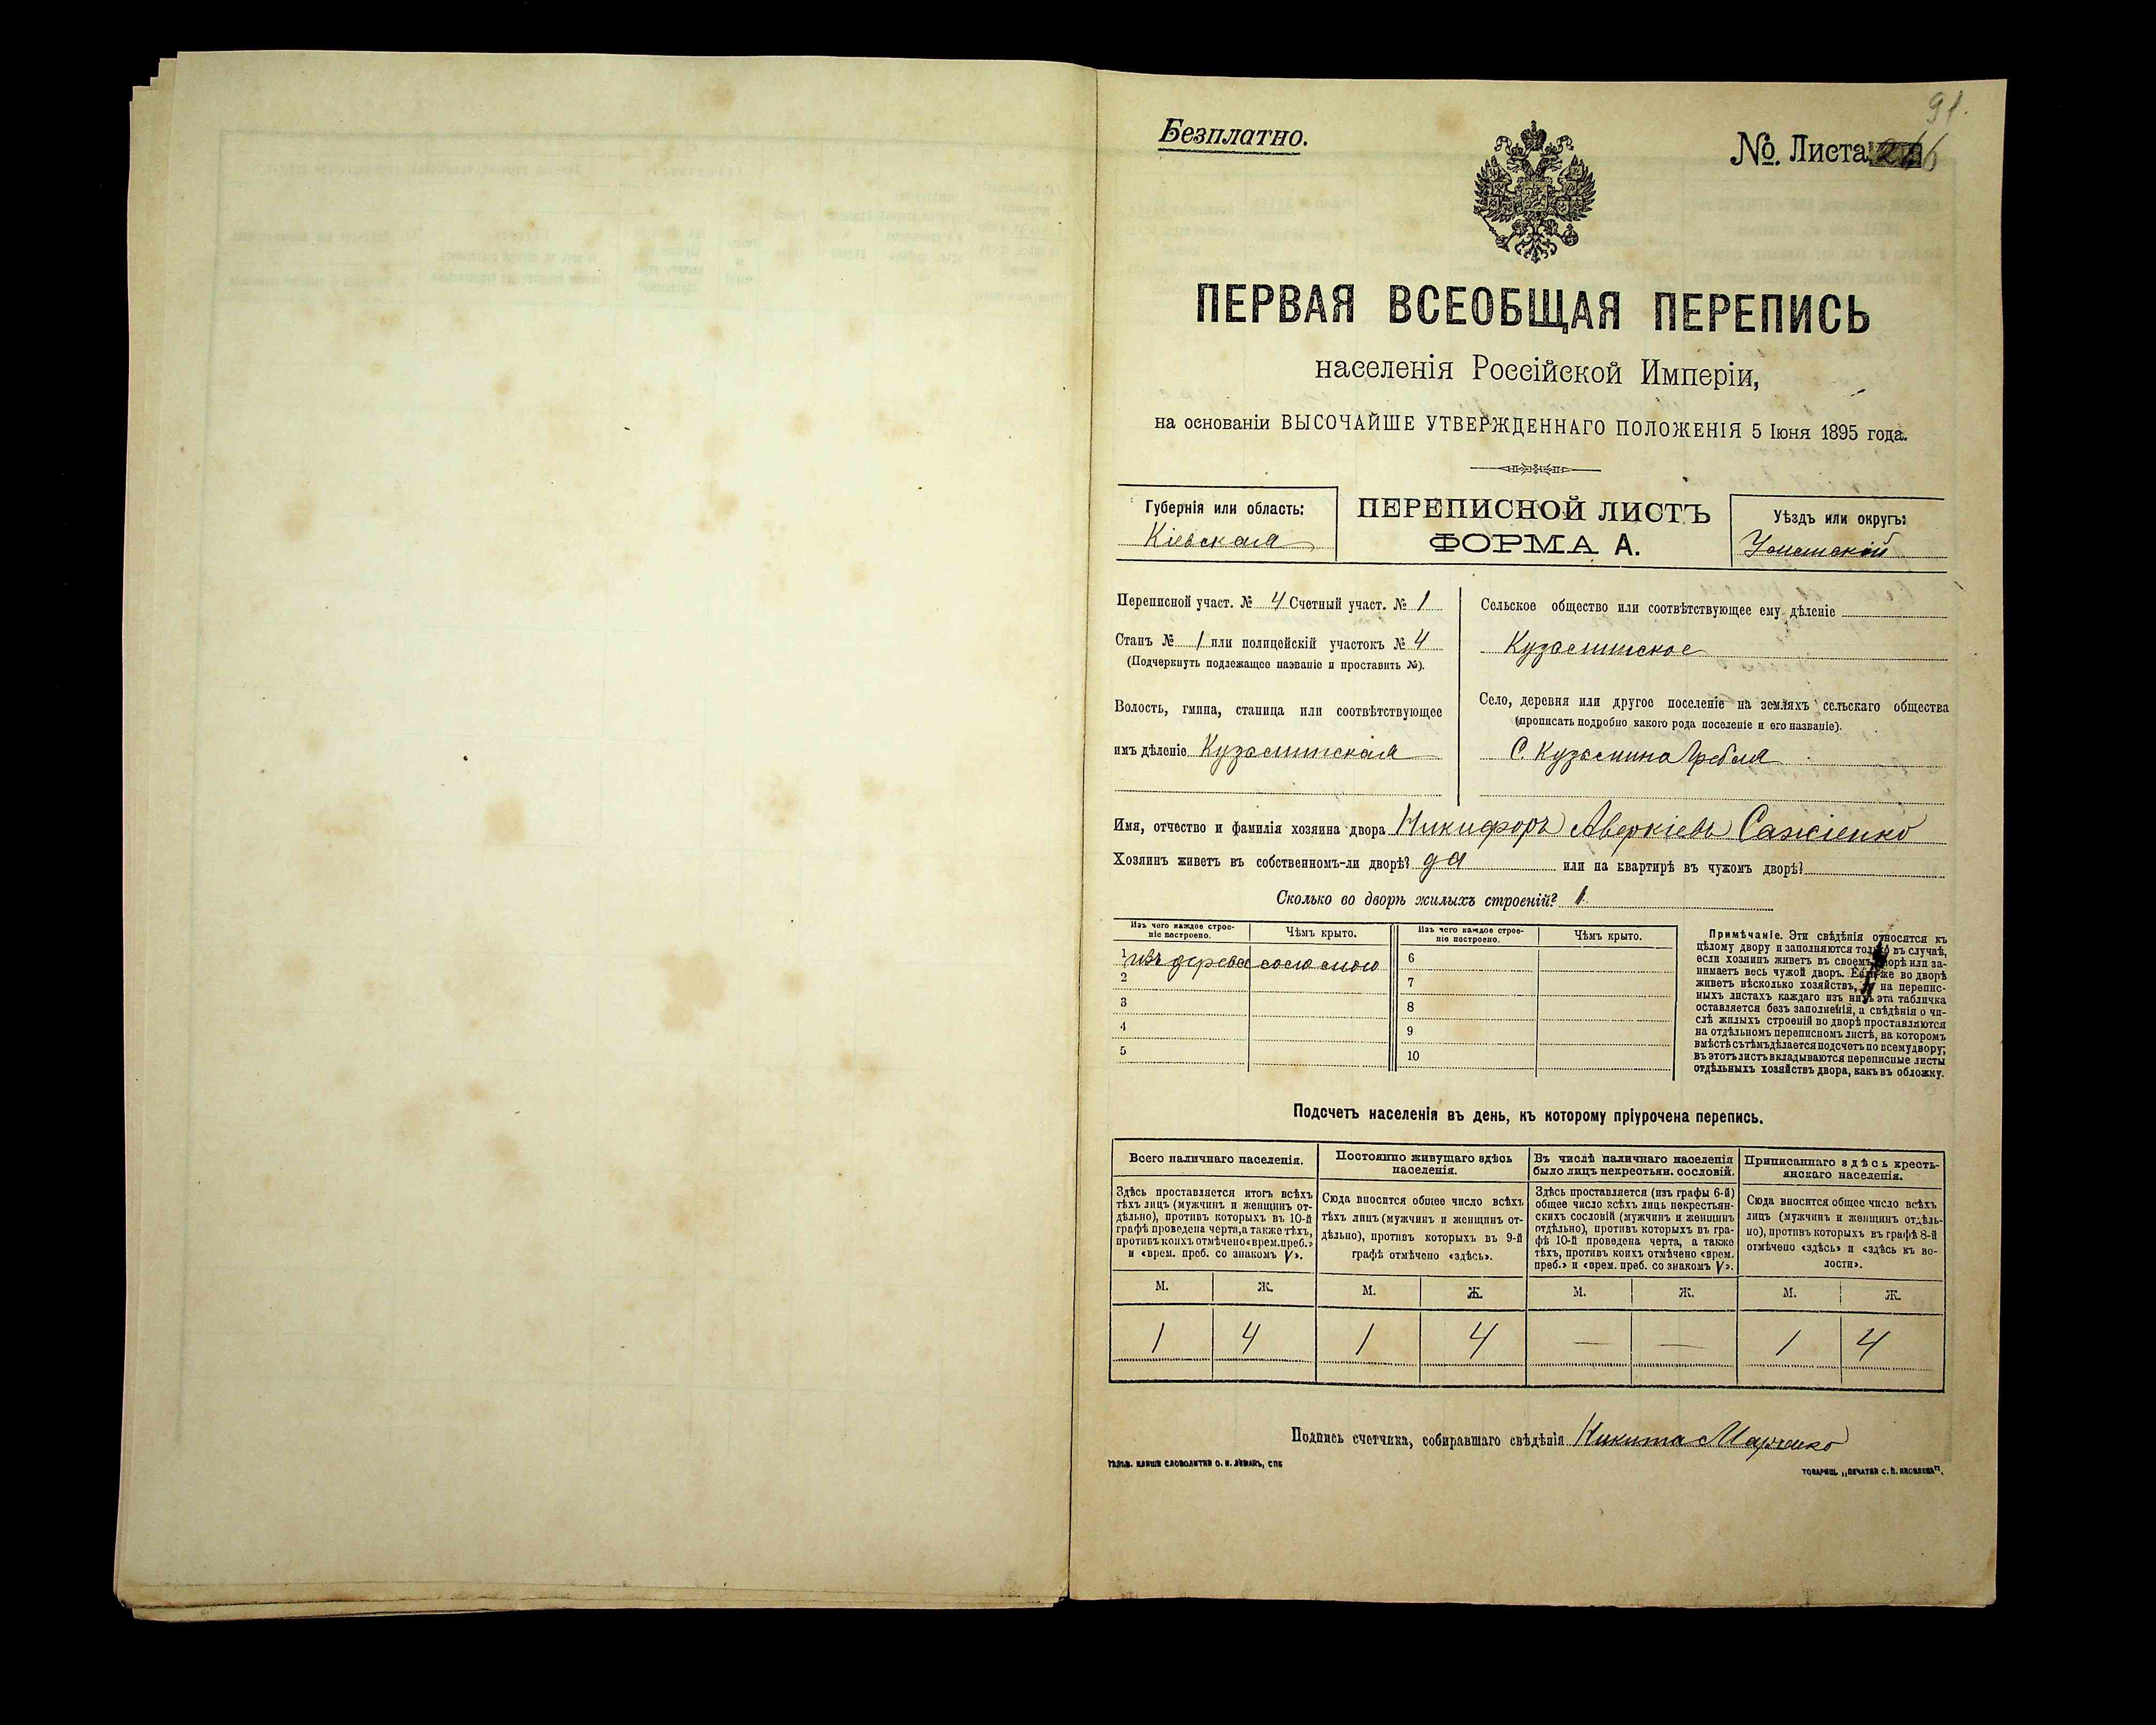 91.
Безплатно.
№. Листа
ПЕРВАЯ ВСЕОБЩАЯ ПЕРЕПИСЬ
населенія Россійской Имперіи,
на основаніи ВЫСОЧАЙШЕ УТВЕРЖДЕННАГО ПОЛОЖЕНІЯ 5 Іюня 1895 года.
Губернія или область:
Кіевская
ПЕРЕПИСНОЙ ЛИСТЪ
ФОРМА А.
Уѣздъ или округъ:
Уманскій
Переписной участ. № 4 Счетный участ. № 1
Станъ № 1 или полицейскій участокъ № 4
(Подчеркнуть подлежащее названіе и проставить №).
Волость, гмина, станица или соотвѣтствующее
имъ дѣленіе Кузьминская
Сельское общество или соотвѣтствующее ему дѣленіе
Кузьминское
Село, деревня или другое поселеніе на земляхъ сельскаго общества
(прописать подробно какого рода поселеніе и его названіе).
С. Кузьмина Гребля
Имя, отчество и фамилія хозяина двора Никифоръ Аверкіевъ
Хозяинъ живетъ въ собственномъ-ли дворѣ? да или на квартирѣ въ чужомъ дворѣ?
Сколько во дворѣ жилыхъ строеній? 1
Изъ чего каждое строе-
ніе построено.
Чѣмъ крыто.
Изъ чего каждое строе-
ніе построено.
Чѣмъ крыто.
1 изъ дерева соломою
2
3
4
5
6
7
8
9
10
Примѣчаніе. Эти свѣдѣнія относятся къ
цѣлому двору и заполняются только въ случаѣ,
если хозяинъ живетъ въ своемъ дворѣ или за-
нимаетъ весь чужой дворъ. Если-же во дворѣ
живетъ нѣсколько хозяйствъ, на перепис-
ныхъ листахъ каждаго изъ нихъ эта табличка
оставляется безъ заполненія, а свѣдѣнія о чи-
слѣ жилыхъ строеній во дворѣ проставляются
на отдѣльномъ переписномъ листѣ, на которомъ
вмѣстѣ съ тѣмъ дѣлается подсчетъ по всему двору;
въ этотъ листъ вкладываются переписные листы
отдѣльныхъ хозяйствъ двора, какъ въ обложку.
Подсчетъ населенія въ день, къ которому пріурочена перепись.
Всего наличнаго населенія.
Здѣсь проставляется итогъ всѣхъ
тѣхъ лицъ (мужчинъ и женщинъ от-
дѣльно), противъ которыхъ въ 10-й
графѣ проведена черта, а также тѣхъ,
противъ коихъ отмѣчено «врем. преб.»
и «врем. преб. со знакомъ V».
Постоянно живущаго здѣсь
населенія.
Сюда вносится общее число всѣхъ
тѣхъ лицъ (мужчинъ и женщинъ от-
дѣльно), противъ которыхъ въ 9-й
графѣ отмѣчено «здѣсь».
Въ числѣ наличнаго населенія
было лицъ некрестьян. сословій.
Здѣсь проставляется (изъ графы 6-й)
общее число всѣхъ лицъ некрестьян-
скихъ сословій (мужчинъ и женщинъ
отдѣльно), противъ которыхъ въ гра-
фѣ 10-й проведена черта, а также
тѣхъ, противъ коихъ отмѣчено «врем.
преб.» и «врем. преб. со знакомъ V».
Приписаннаго здѣсь кресть-
янскаго населенія.
Сюда вносится общее число всѣхъ
лицъ (мужчинъ и женщинъ отдѣль-
но), противъ которыхъ въ графѣ 8-й
отмѣчено «здѣсь» и «здѣсь къ во-
лости».
М. Ж. М. Ж. М. Ж. М. Ж.
1 4 1 4 — — 1 4
Подпись счетчика, собиравшаго свѣдѣнія Никита Марченко
ГАЛЬВ. КЛИШЕ СЛОВОЛИТНИ О. И. ЛЕМАНЪ, СПБ
ТОВАРИЩ. „ПЕЧАТНЯ С. П. ЯКОВЛЕВА".